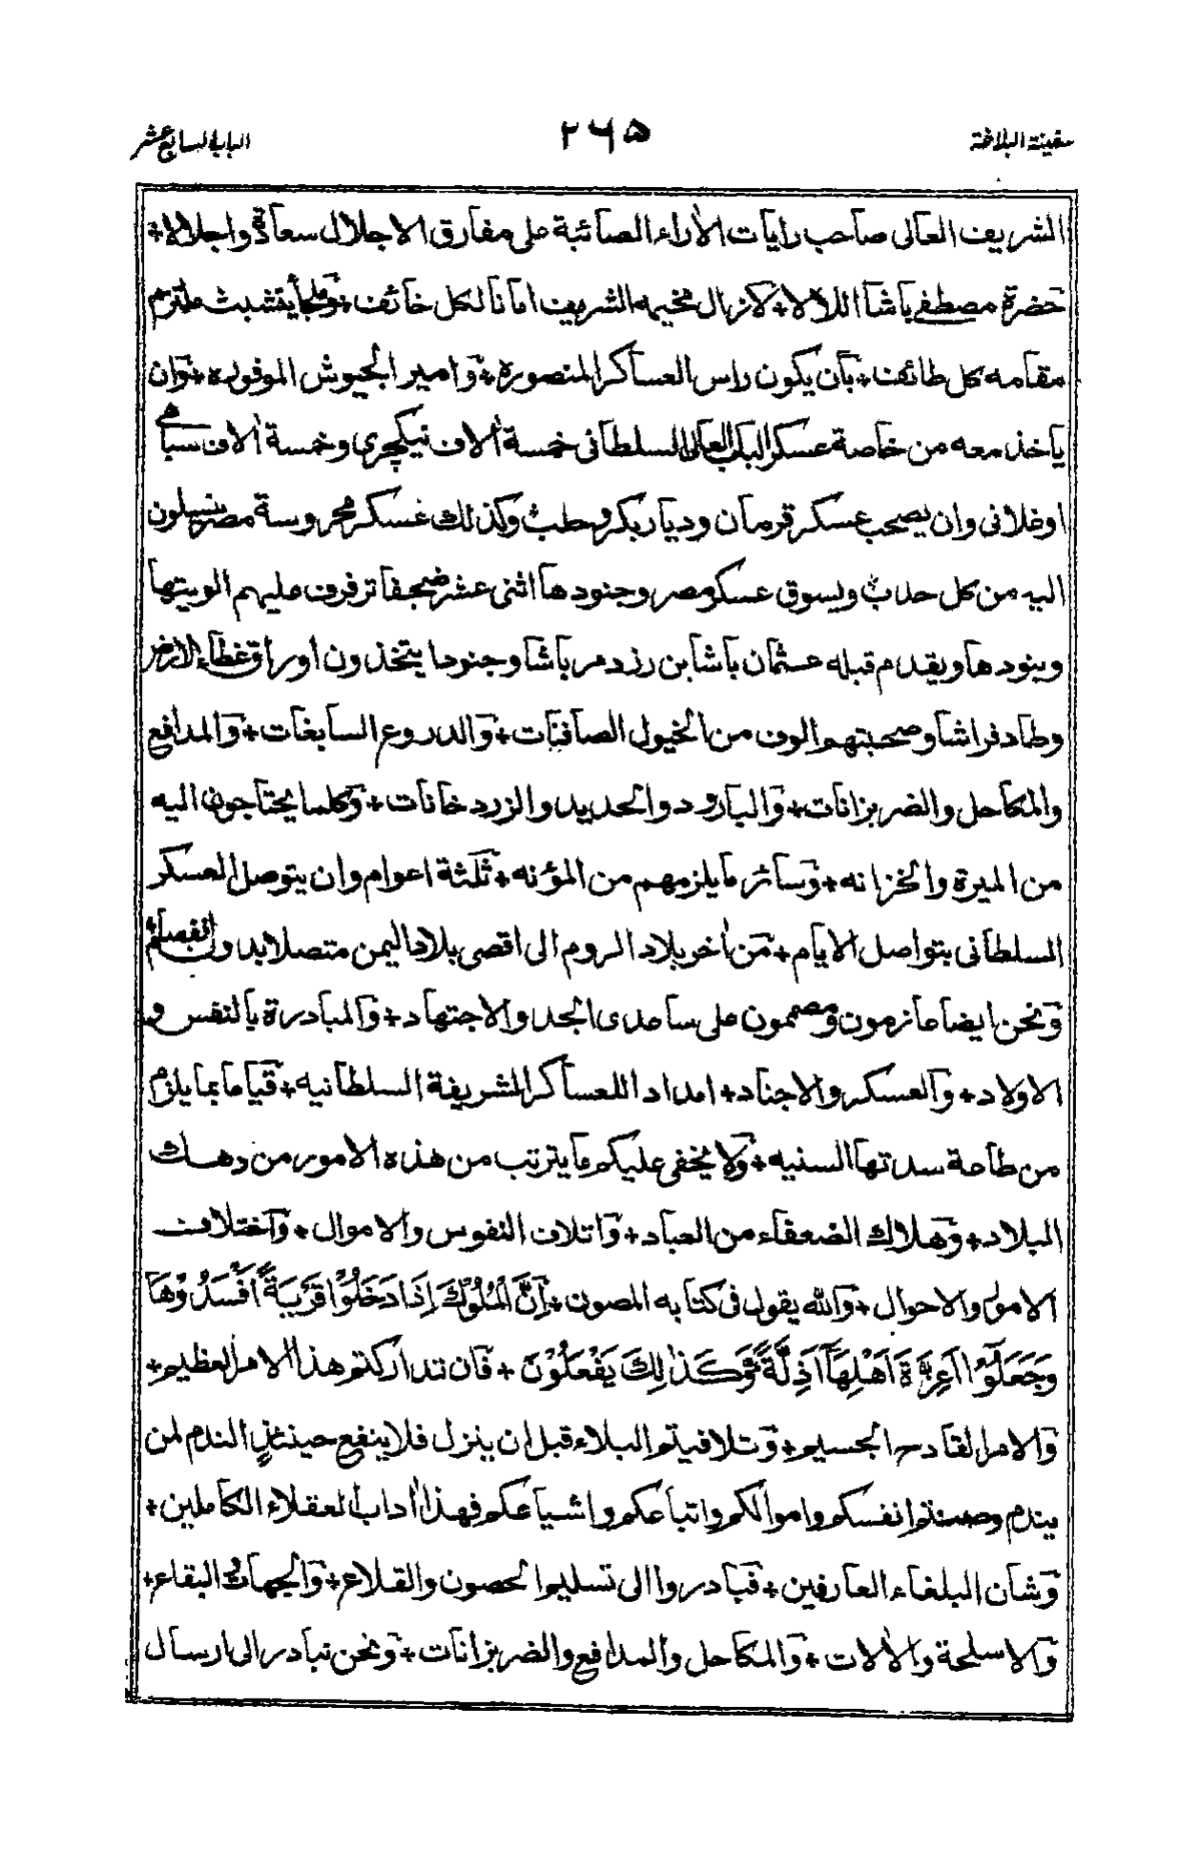 سفينة البلاغة ٢٦٥ الباب السابع عشر
الشريف العالى صاحب رايات الأراء الصائبة على مفارق الاجلال سعادة واجلالا+
حضرة مصطفى باشا اللالا+ لازال مخيمه الشريف امانا لكل خائف+ وملجأ يتشبث ملتزم
مقامه كل طائف+ بان يكون راس العساكر المنصورة+ وامير الجيوش الموفوره+ وان
ياخذ معه من خاصة عسكر الباب العالى السلطانى خمسة ألاف نيكچرى وخمسة ألاف سباهى
اوغلانى وان يصحب عسكر قرمان وديار بكر وحلب وكذلك عسكر محروسة مصر ينسلون
اليه من كل حدب ويسوق عسكر مصر وجنودها اثنى عشر ضنجقا ترفرف عليهم الويتها
وبنودها ويقدم قبله عثمان باشا بن رزدمر باشا وجنودا يتخذون اوراق غطاء الارض
وطاد فراشا وصحبتهم الوف من الخيول الصافنات+ والدروع السابغات+ والمدافع
والمكاحل والضربزانات+ والبارود والحديد والزردخانات+ وكلما يحتاجون اليه
من الميرة والخزانه+ وسائر ما يلزمهم من المؤنه+ ثلثة اعوام وان يتوصل العسكر
السلطانى بتواصل الايام+ من أخر بلاد الروم الى اقصى بلاد اليمن متصلا بدون انفصام
ونحن ايضا عازمون ومصممون على ساعدى الجد والاجتهاد+ والمبادرة بالنفس و
الاولاد+ والعسكر والاجناد+ امداد اللعساكر الشريفة السلطانيه+ قياما بما يلزم
من طاعة سدتها السنيه+ ولا يخفى عليكم ما يترتب من هذه الامور من دهك
البلاد+ وهلاك الضعفاء من العباد+ واتلاف النفوس والاموال+ واختلاف
الامور والاحوال+ والله يقول فى كتابه المصون+ اِنَّ الْمُلُوْكَ اِذَا دَخَلُوْا قَرْيَةً اَفْسَدُوْهَا
وَجَعَلُوْٓا اَعِزَّةَ اَهْلِهَآ اَذِلَّةً وَكَذٰلِكَ يَفْعَلُوْنَ + فان تداركتم هذا الامر العظيم+
والامر القادح الجسيم+ وتلافيتم البلاء قبل ان ينزل فلا ينفع حينئذٍ الندم لمن
يندم وصنتوا نفسكم واموالكم واتباعكم واشياعكم فهذا أداب العقلاء الكاملين+
وشان البلغاء العارفين+ فبادروا الى تسليم الحصون والقلاع+ والجهات والبقاع+
والاسلحة والألات+ والمكاحل والمدافع والضربزانات+ ونحن نبادر الى ارسال